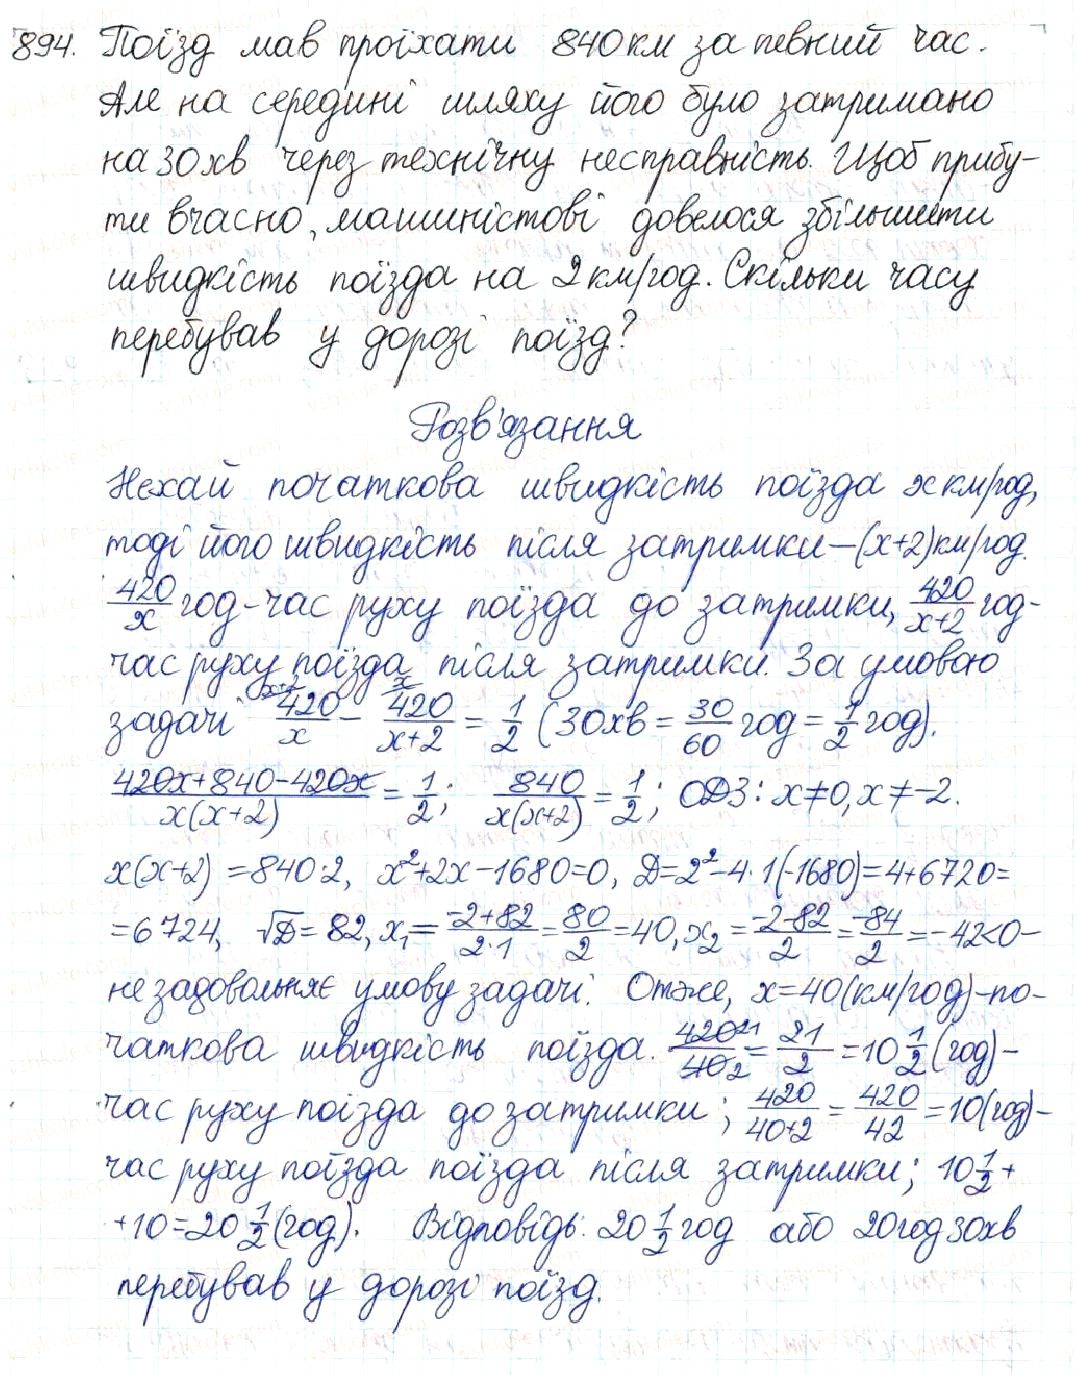 894. Поїзд мав проїхати 840 км за певний час.
Але на середині шляху його було затримано
на 30 хв через технічну несправність. Щоб прибу-
ти вчасно, машиністові довелося збільшити
швидкість поїзда на 2 км/год. Скільки часу
перебував у дорозі поїзд?
Розв'язання
Нехай початкова швидкість поїзда x км/год,
тоді його швидкість після затримки – (x+2) км/год.
420/x год - час руху поїзда до затримки, 420/(x+2) год -
час руху поїзда після затримки. За умовою
задачі 420/x - 420/(x+2) = 1/2 (30 хв = 30/60 год = 1/2 год).
(420x+840-420x)/(x(x+2)) = 1/2; 840/(x(x+2)) = 1/2; ОДЗ: x≠0, x≠-2.
x(x+2) = 840·2, x²+2x-1680=0, D=2²-4·1(-1680)=4+6720=
=6724, √D = 82, x₁ = (-2+82)/(2·1) = 80/2 = 40, x₂ = (-2-82)/2 = -84/2 = -42<0 -
не задовольняє умову задачі. Отже, x=40 (км/год) - по-
чаткова швидкість поїзда. 420 21/40 2 = 21/2 = 10 1/2 (год) -
час руху поїзда до затримки; 420/(40+2) = 420/42 = 10 (год) -
час руху поїзда поїзда після затримки; 10 1/2 +
+10 = 20 1/2 (год). Відповідь: 20 1/2 год або 20 год 30 хв
перебував у дорозі поїзд.